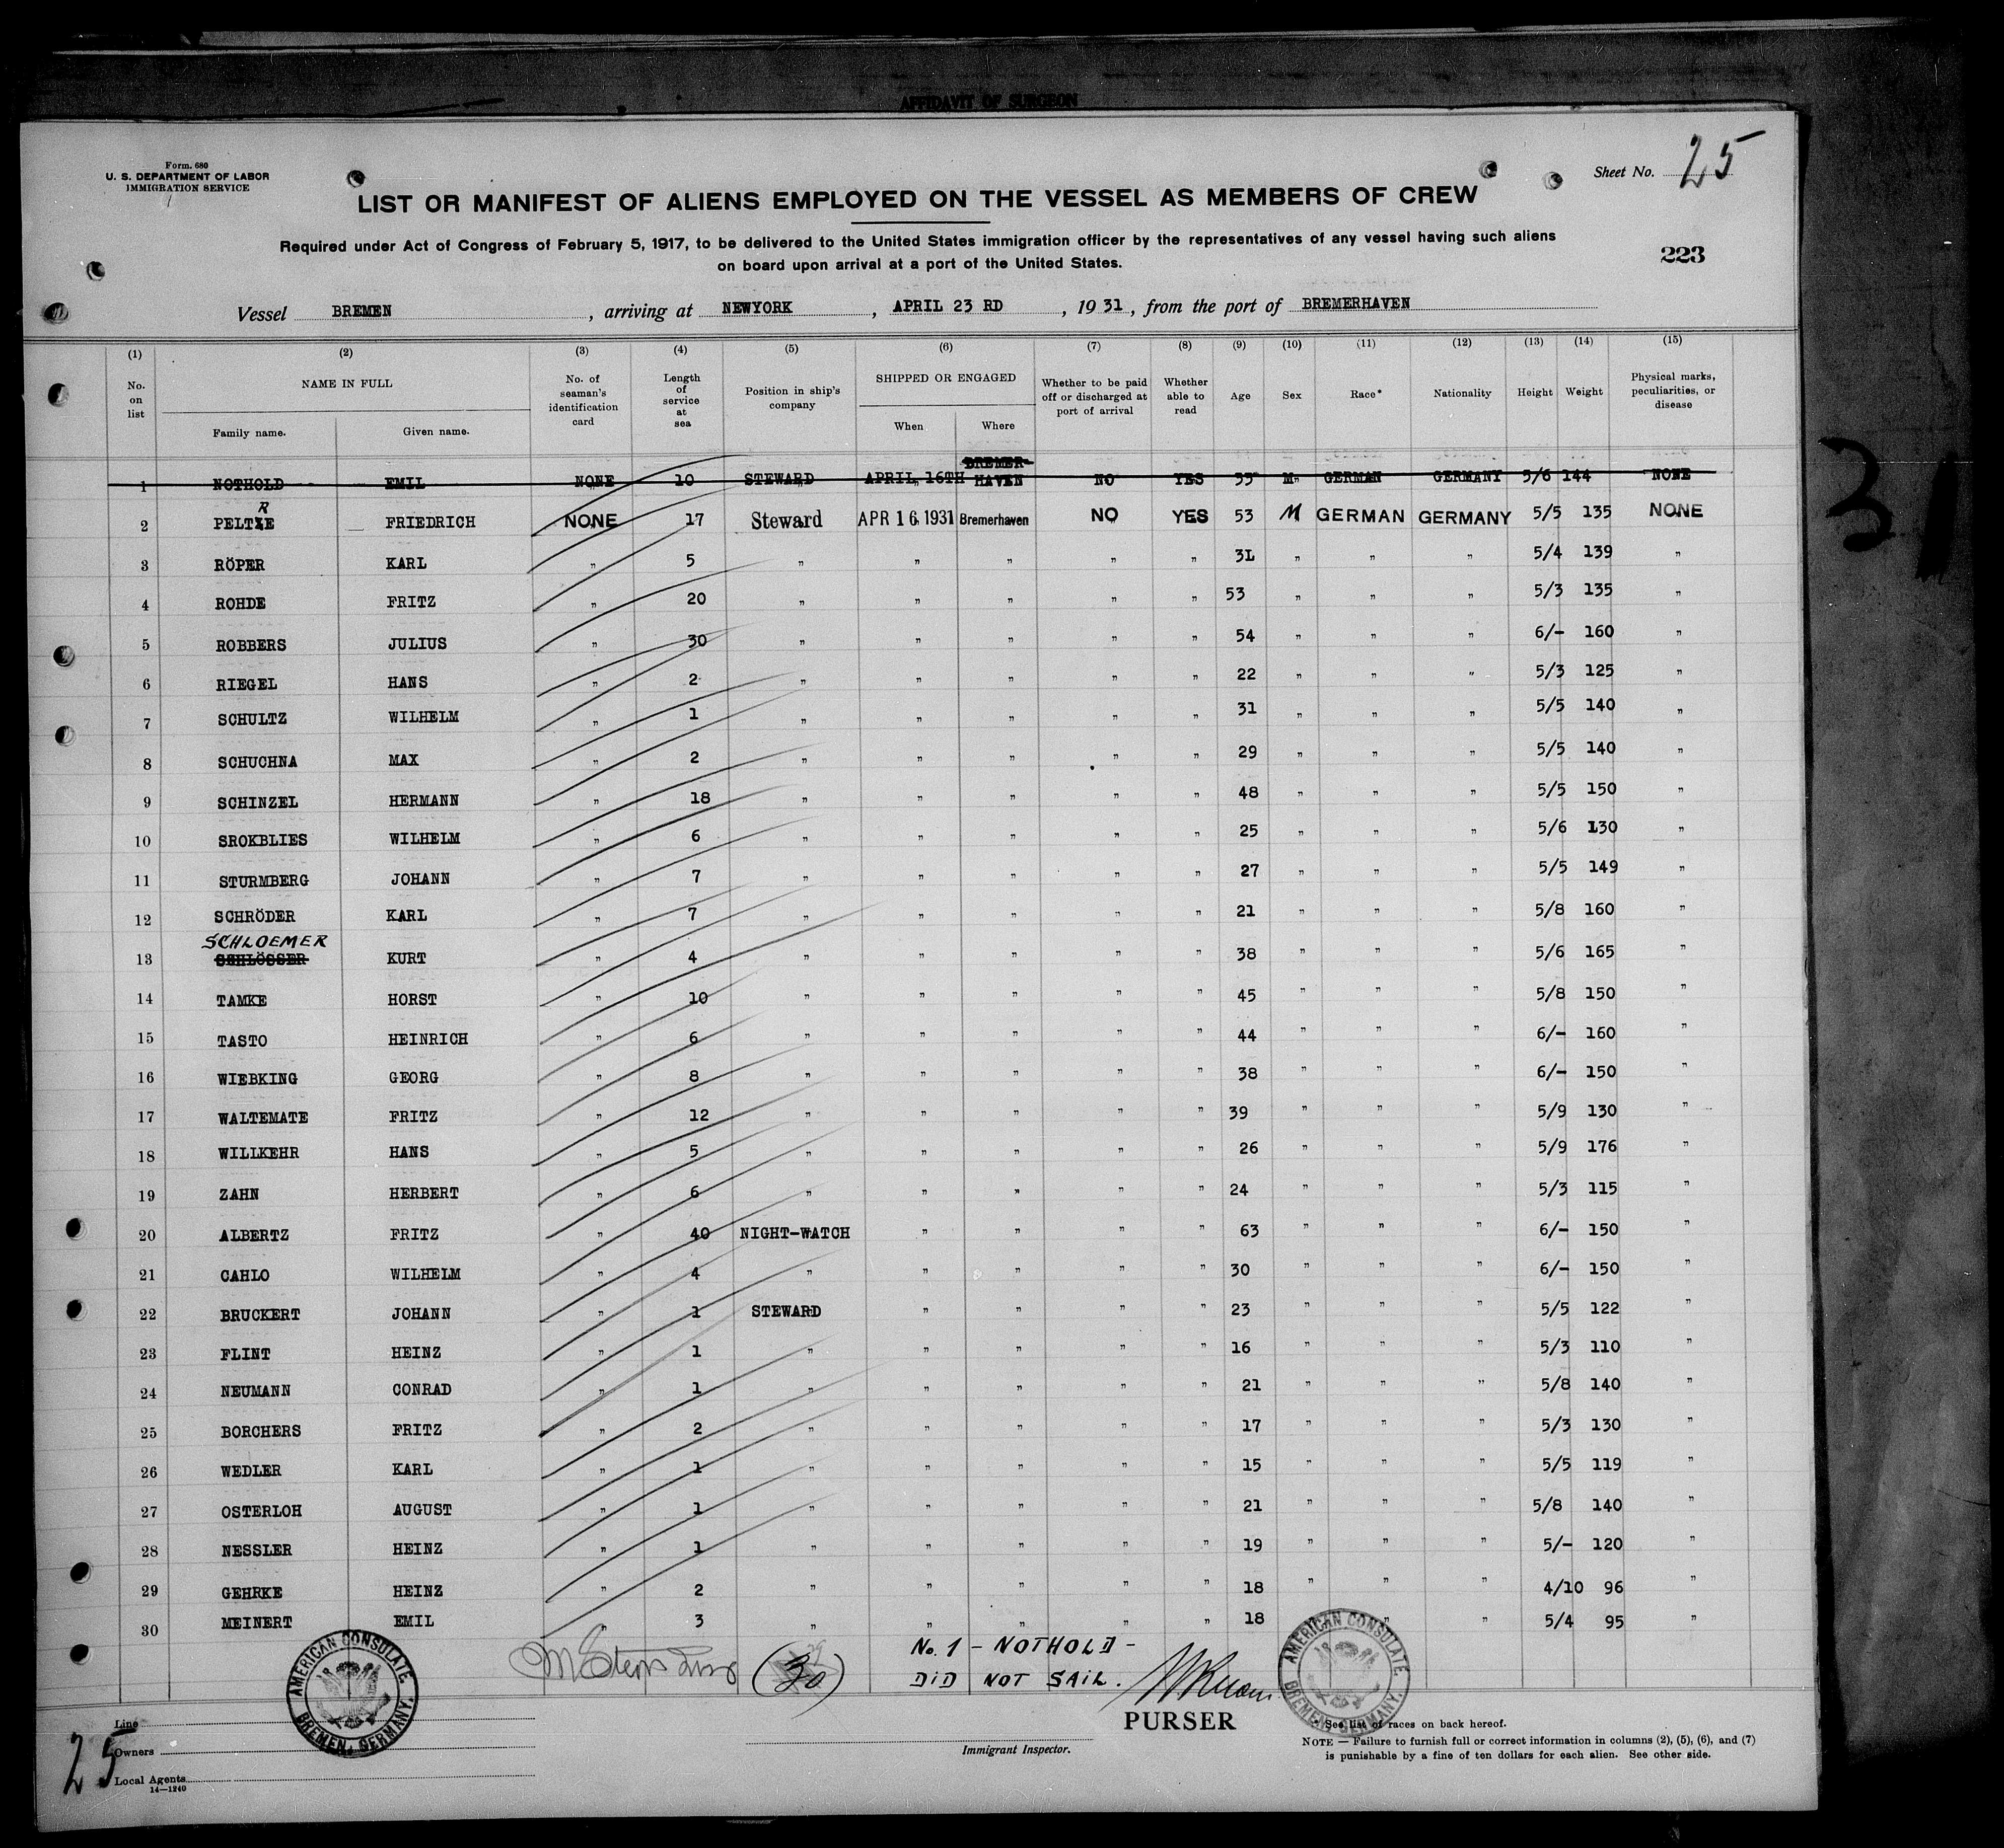 AFFIDAVIT OF SURGEON
Form. 680
U. S. DEPARTMENT OF LABOR
IMMIGRATION SERVICE
Sheet No. 25
LIST OR MANIFEST OF ALIENS EMPLOYED ON THE VESSEL AS MEMBERS OF CREW
Required under Act of Congress of February 5, 1917, to be delivered to the United States immigration officer by the representatives of any vessel having such aliens
on board upon arrival at a port of the United States.
223
Vessel BREMEN, arriving at NEWYORK, APRIL 23 RD, 1931, from the port of BREMERHAVEN
(1) (2) (3) (4) (5) (6) (7) (8) (9) (10) (11) (12) (13) (14) (15)
No. on list NAME IN FULL Family name. Given name. No. of seaman's identification card Length of service at sea Position in ship's company SHIPPED OR ENGAGED When Where Whether to be paid off or discharged at port of arrival Whether able to read Age Sex Race* Nationality Height Weight Physical marks, peculiarities, or disease
1 NOTHOLD EMIL NONE 10 STEWARD APRIL 16TH BREMER-HAVEN NO YES 35 M GERMAN GERMANY 5/6 144 NONE
R
2 PELTZE FRIEDRICH NONE 17 Steward APR 16 1931 Bremerhaven NO YES 53 M GERMAN GERMANY 5/5 135 NONE
3 RÖPER KARL " 5 " " " " " 3L " " " 5/4 139 "
4 ROHDE FRITZ " 20 " " " " " 53 " " " 5/3 135 "
5 ROBBERS JULIUS " 30 " " " " " 54 " " " 6/- 160 "
6 RIEGEL HANS " 2 " " " " " 22 " " " 5/3 125 "
7 SCHULTZ WILHELM " 1 " " " " " 31 " " " 5/5 140 "
8 SCHUCHNA MAX " 2 " " " " " 29 " " " 5/5 140 "
9 SCHINZEL HERMANN " 18 " " " " " 48 " " " 5/5 150 "
10 SROKBLIES WILHELM " 6 " " " " " 25 " " " 5/6 130 "
11 STURMBERG JOHANN " 7 " " " " " 27 " " " 5/5 149 "
12 SCHRÖDER KARL " 7 " " " " " 21 " " " 5/8 160 "
SCHLOEMER
13 SCHLÖSSER KURT " 4 " " " " " 38 " " " 5/6 165 "
14 TAMKE HORST " 10 " " " " " 45 " " " 5/8 150 "
15 TASTO HEINRICH " 6 " " " " " 44 " " " 6/- 160 "
16 WIEBKING GEORG " 8 " " " " " 38 " " " 6/- 150 "
17 WALTEMATE FRITZ " 12 " " " " " 39 " " " 5/9 130 "
18 WILLKEHR HANS " 5 " " " " " 26 " " " 5/9 176 "
19 ZAHN HERBERT " 6 " " " " " 24 " " " 5/3 115 "
20 ALBERTZ FRITZ " 40 NIGHT-WATCH " " " " 63 " " " 6/- 150 "
21 CAHLO WILHELM " 4 " " " " " 30 " " " 6/- 150 "
22 BRUCKERT JOHANN " 1 STEWARD " " " " 23 " " " 5/5 122 "
23 FLINT HEINZ " 1 " " " " " 16 " " " 5/3 110 "
24 NEUMANN CONRAD " 1 " " " " " 21 " " " 5/8 140 "
25 BORCHERS FRITZ " 2 " " " " " 17 " " " 5/3 130 "
26 WEDLER KARL " 1 " " " " " 15 " " " 5/5 119 "
27 OSTERLOH AUGUST " 1 " " " " " 21 " " " 5/8 140 "
28 NESSLER HEINZ " 1 " " " " " 19 " " " 5/- 120 "
29 GEHRKE HEINZ " 2 " " " " " 18 " " " 4/10 96 "
30 MEINERT EMIL " 3 " " " " " 18 " " " 5/4 95 "
No. 1 - NOTHOLD -
DID NOT SAIL.
(30)
AMERICAN CONSULATE. BREMEN, GERMANY.
AMERICAN CONSULATE. BREMEN, GERMANY.
PURSER
Line
Owners
Local Agents
14—1240
25
Immigrant Inspector.
* See list of races on back hereof.
NOTE — Failure to furnish full or correct information in columns (2), (5), (6), and (7)
is punishable by a fine of ten dollars for each alien. See other side.
31